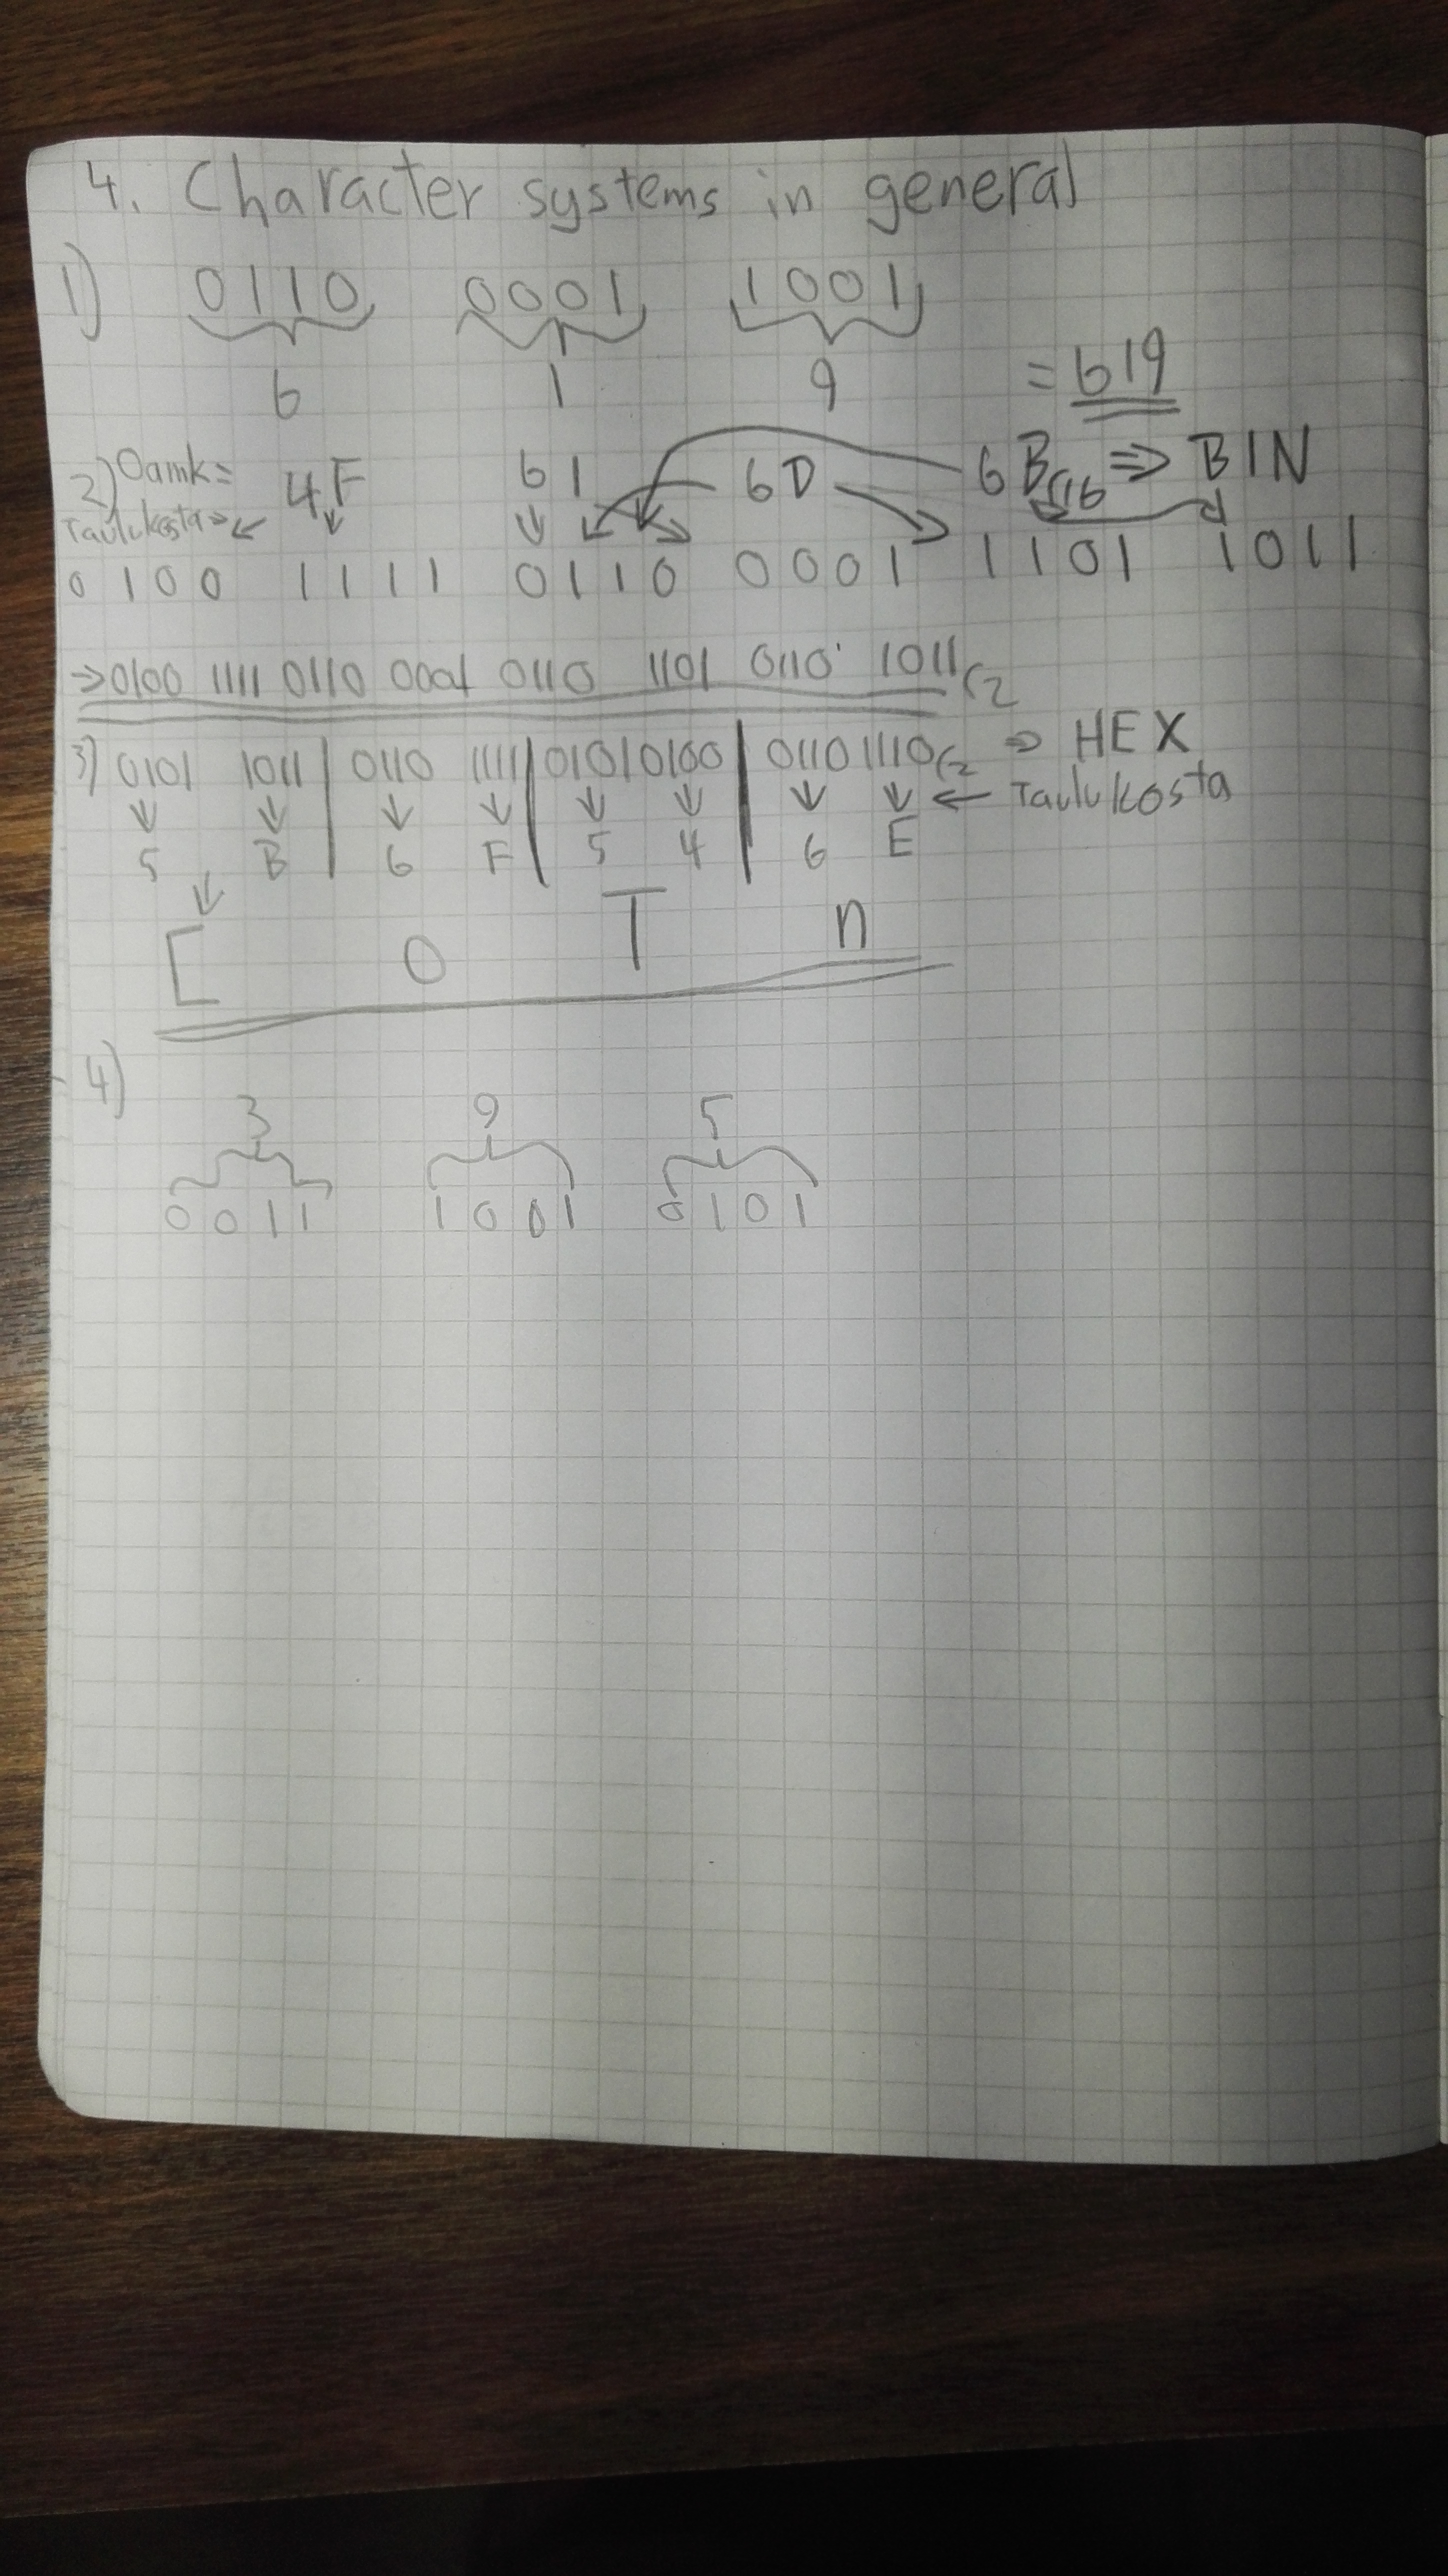 4. Character systems in general
1) 0110 0001 1001
6 1 9 = 619
2) Oamk = 4F 61 6D 6B(16 => BIN
Taulukosta =>
0100 1111 0110 0001 1101 1011
=> 0100 1111 0110 0001 0110 1101 0110 1011(2
3) 0101 1011 | 0110 1111 | 0101 0100 | 0110 1110(2 => HEX
← Taulukosta
5 B 6 F 5 4 6 E
[ o T n
4)
3 9 5
0011 1001 0101